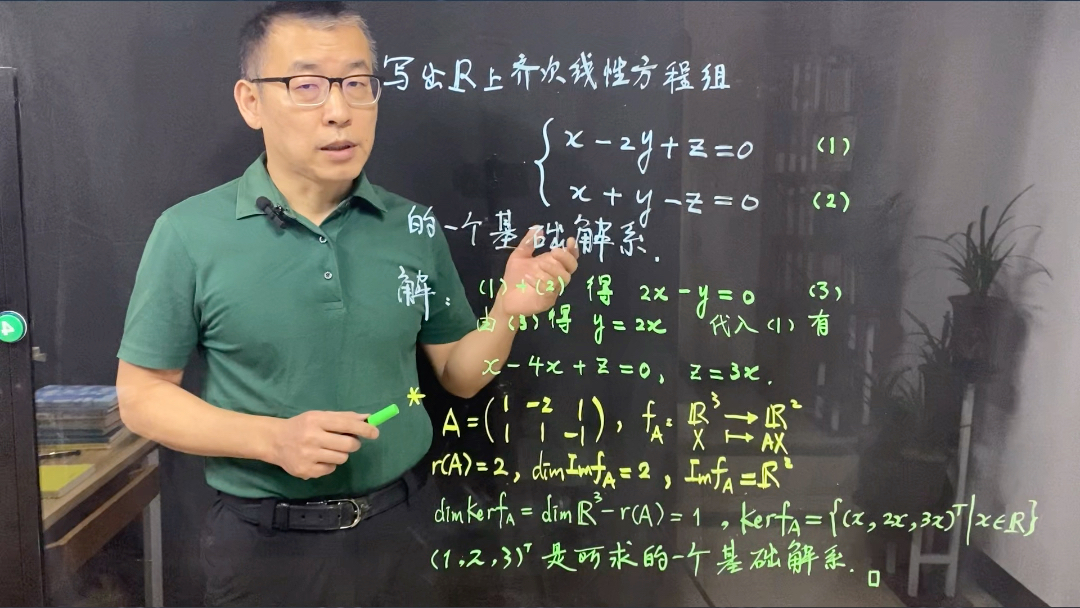 写出ℝ上齐次线性方程组
x - 2y + z = 0 (1)
x + y - z = 0 (2)
的一个基础解系.
解: (1)+(2) 得 2x - y = 0 (3)
由(3)得 y = 2x 代入(1)有
x - 4x + z = 0, z = 3x.
* A = (1 -2 1; 1 1 -1), f_A: ℝ³ → ℝ²
X ↦ AX
r(A) = 2, dim Im f_A = 2, Im f_A = ℝ²
dim ker f_A = dim ℝ³ - r(A) = 1, ker f_A = {(x, 2x, 3x)ᵀ | x ∈ ℝ}
(1, 2, 3)ᵀ 是所求的一个基础解系. □
4